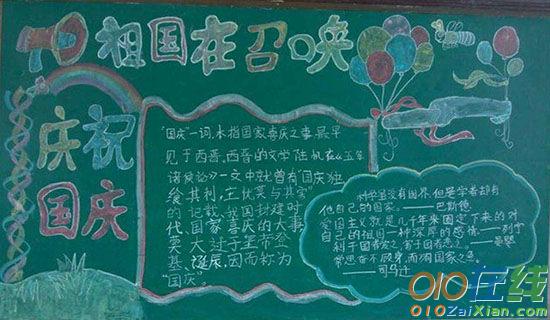 祖国在召唤
庆祝
国庆
"国庆"一词,本指国家喜庆之事,最早
见于西晋。西晋的文学陆机在《五等
诸侯论》一文中就曾有"国庆独
飨其利,主忧莫与其害"
的记载、我国封建时
代、国家喜庆的大事
莫大过于皇帝登
基、诞辰,因而称为
"国庆。
科学虽没有国界,但是学者却有
他自己的国家。——巴斯德
爱国主义就是几千年来固定下来的对
自己的祖国一种深厚的感情。——列宁
利于国者爱之,害于国者恶之。——晏婴
常思奋不顾身,而殉国家之急。
——司马迁
010在线
010ZaiXian.com